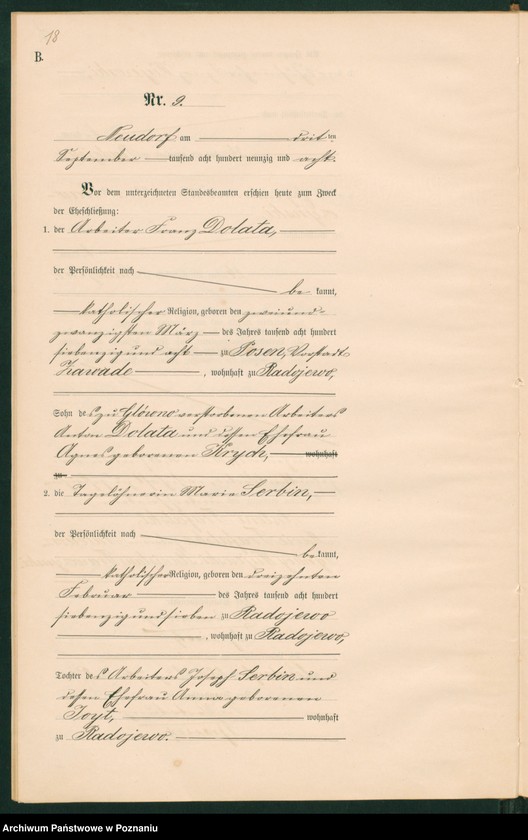 18
B.
Nr. 9.
Neudorf am dritten
September tausend acht hundert neunzig und acht.
Vor dem unterzeichneten Standesbeamten erschien heute zum Zweck
der Eheschließung:
1. der Arbeiter Franz Dolata,
der Persönlichkeit nach
bekannt,
katholischer Religion, geboren den zweiund-
zwanzigsten März des Jahres tausend acht hundert
siebenzig und acht zu Posen, Vorstadt
Zawade, wohnhaft zu Radojewo,
Sohn des zu Glówno verstorbenen Arbeiters
Anton Dolata und dessen Ehefrau
Agnes geborenen Krych, wohnhaft
zu
2. die Tagelöhnerin Marie Serbin,
der Persönlichkeit nach
bekannt,
katholischer Religion, geboren den dreizehnten
Februar des Jahres tausend acht hundert
siebenzig und sieben zu Radojewo
, wohnhaft zu Radojewo,
Tochter des Arbeiters Joseph Serbin und
dessen Ehefrau Anna geborenen
wohnhaft
zu Radojewo.
Archiwum Państwowe w Poznaniu